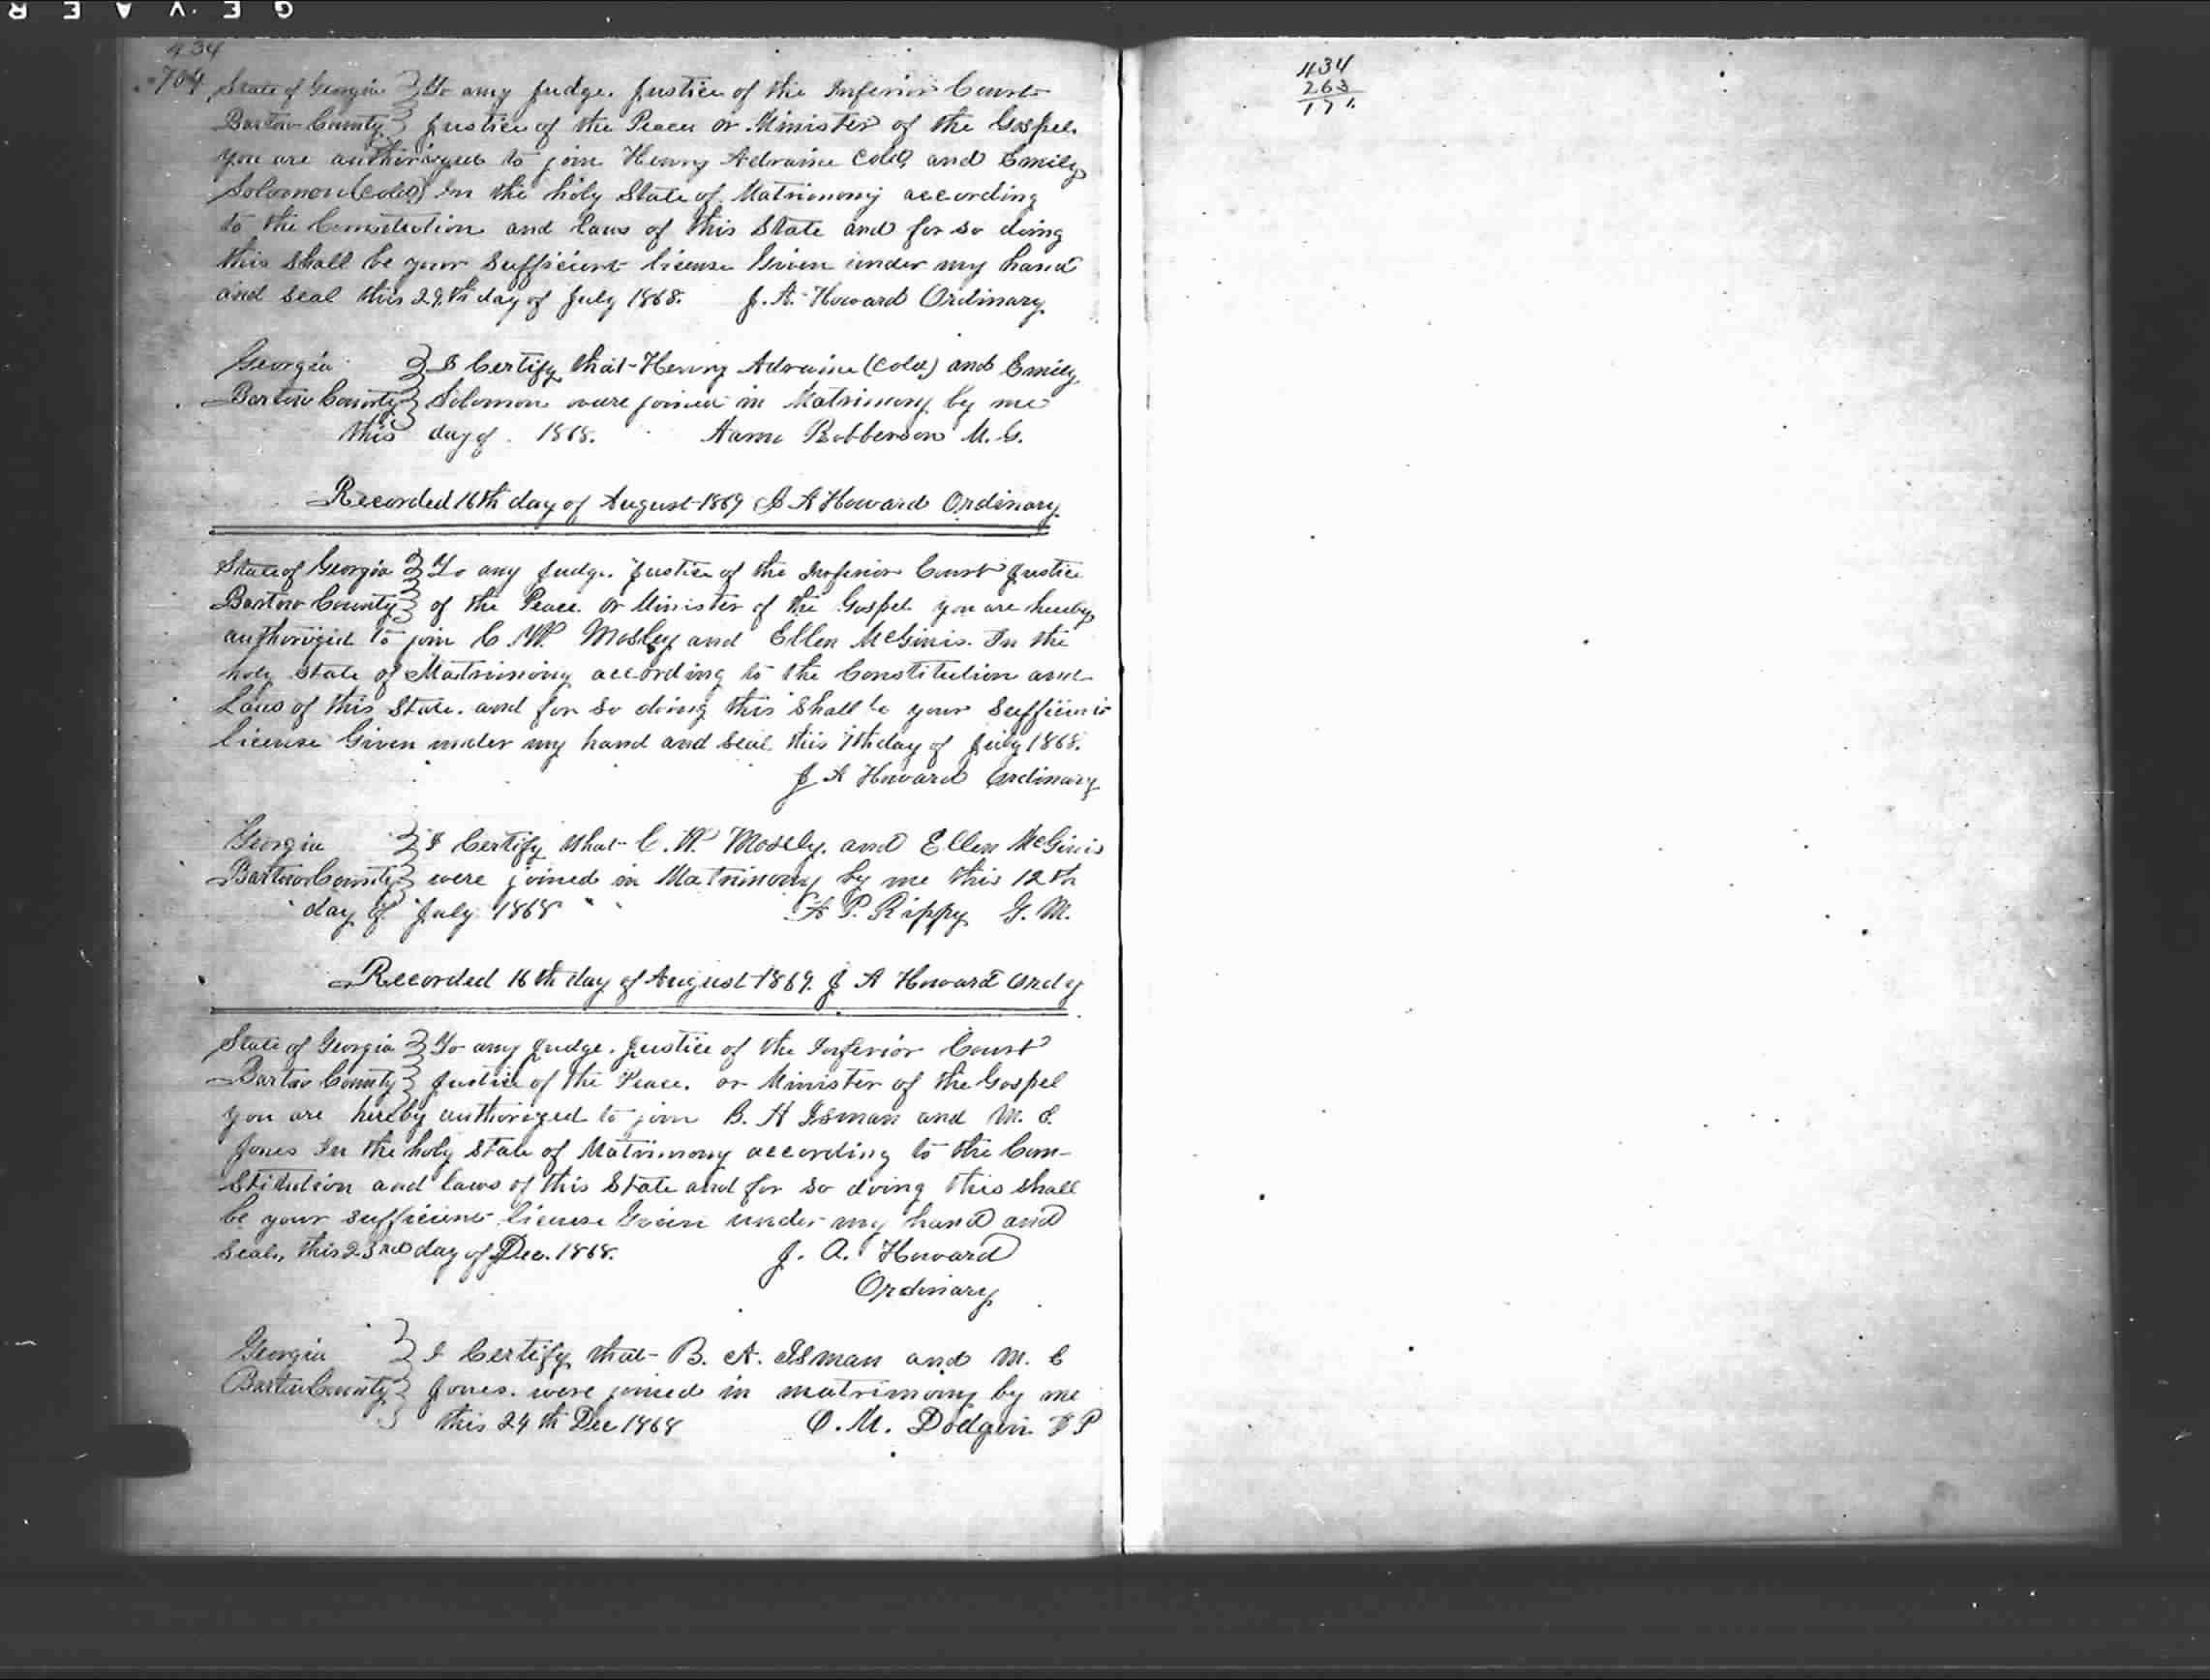 434
704
State of Georgia } To any Judge. Justice of the Inferior Court
Bartow County } Justice of the Peace or Minister of the Gospel.
you are authorized to join Henry Adraine Cold and Emily
Solomon (Cold) In the holy State of Matrimony according
to the Constitution and laws of this State and for so doing
this shall be your sufficient license Given under my hand
and seal this 29th day of July 1868. J. A. Howard Ordinary.
Georgia } I Certify that Henry Adraine (Cold) and Emily
Bartow County } Solomon were joined in Matrimony by me
this day of 1868. Robberson M. G.
Recorded 16th day of August 1869 J A Howard Ordinary
State of Georgia } To any Judge. Justice of the Inferior Court Justice
Bartow County } of the Peace. or Minister of the Gospel you are hereby
authorized to join C. W. Mosley and Ellen McGinis. In the
holy state of Matrimony according to the Constitution and
Laws of this State. and for so doing this shall be your sufficient
license Given under my hand and seal this 7th day of July 1868.
J A Howard Ordinary
Georgia } I Certify that C. W. Mosely. and Ellen McGinis
Bartow County } were joined in Matrimony by me this 12th
day of July 1868 A P. Rippy G. M.
Recorded 16th day of August 1869. J A Howard Ordy
State of Georgia } To any Judge. Justice of the Inferior Court
Bartow County } Justice of the Peace. or Minister of the Gospel
you are hereby authorized to join B. H Isman and M. E.
Jones In the holy State of Matrimony according to the Con-
stitution and laws of this State and for so doing this shall
be your sufficient license Given under my hand and
Seal, this 23rd day of Dec. 1868. J. A. Howard
Ordinary
Georgia } I Certify that B. A. Isman and M. E
Bartow County } Jones. were joined in matrimony by me
this 24th Dec 1868 O. M. Dodgin J P
434
263
171.